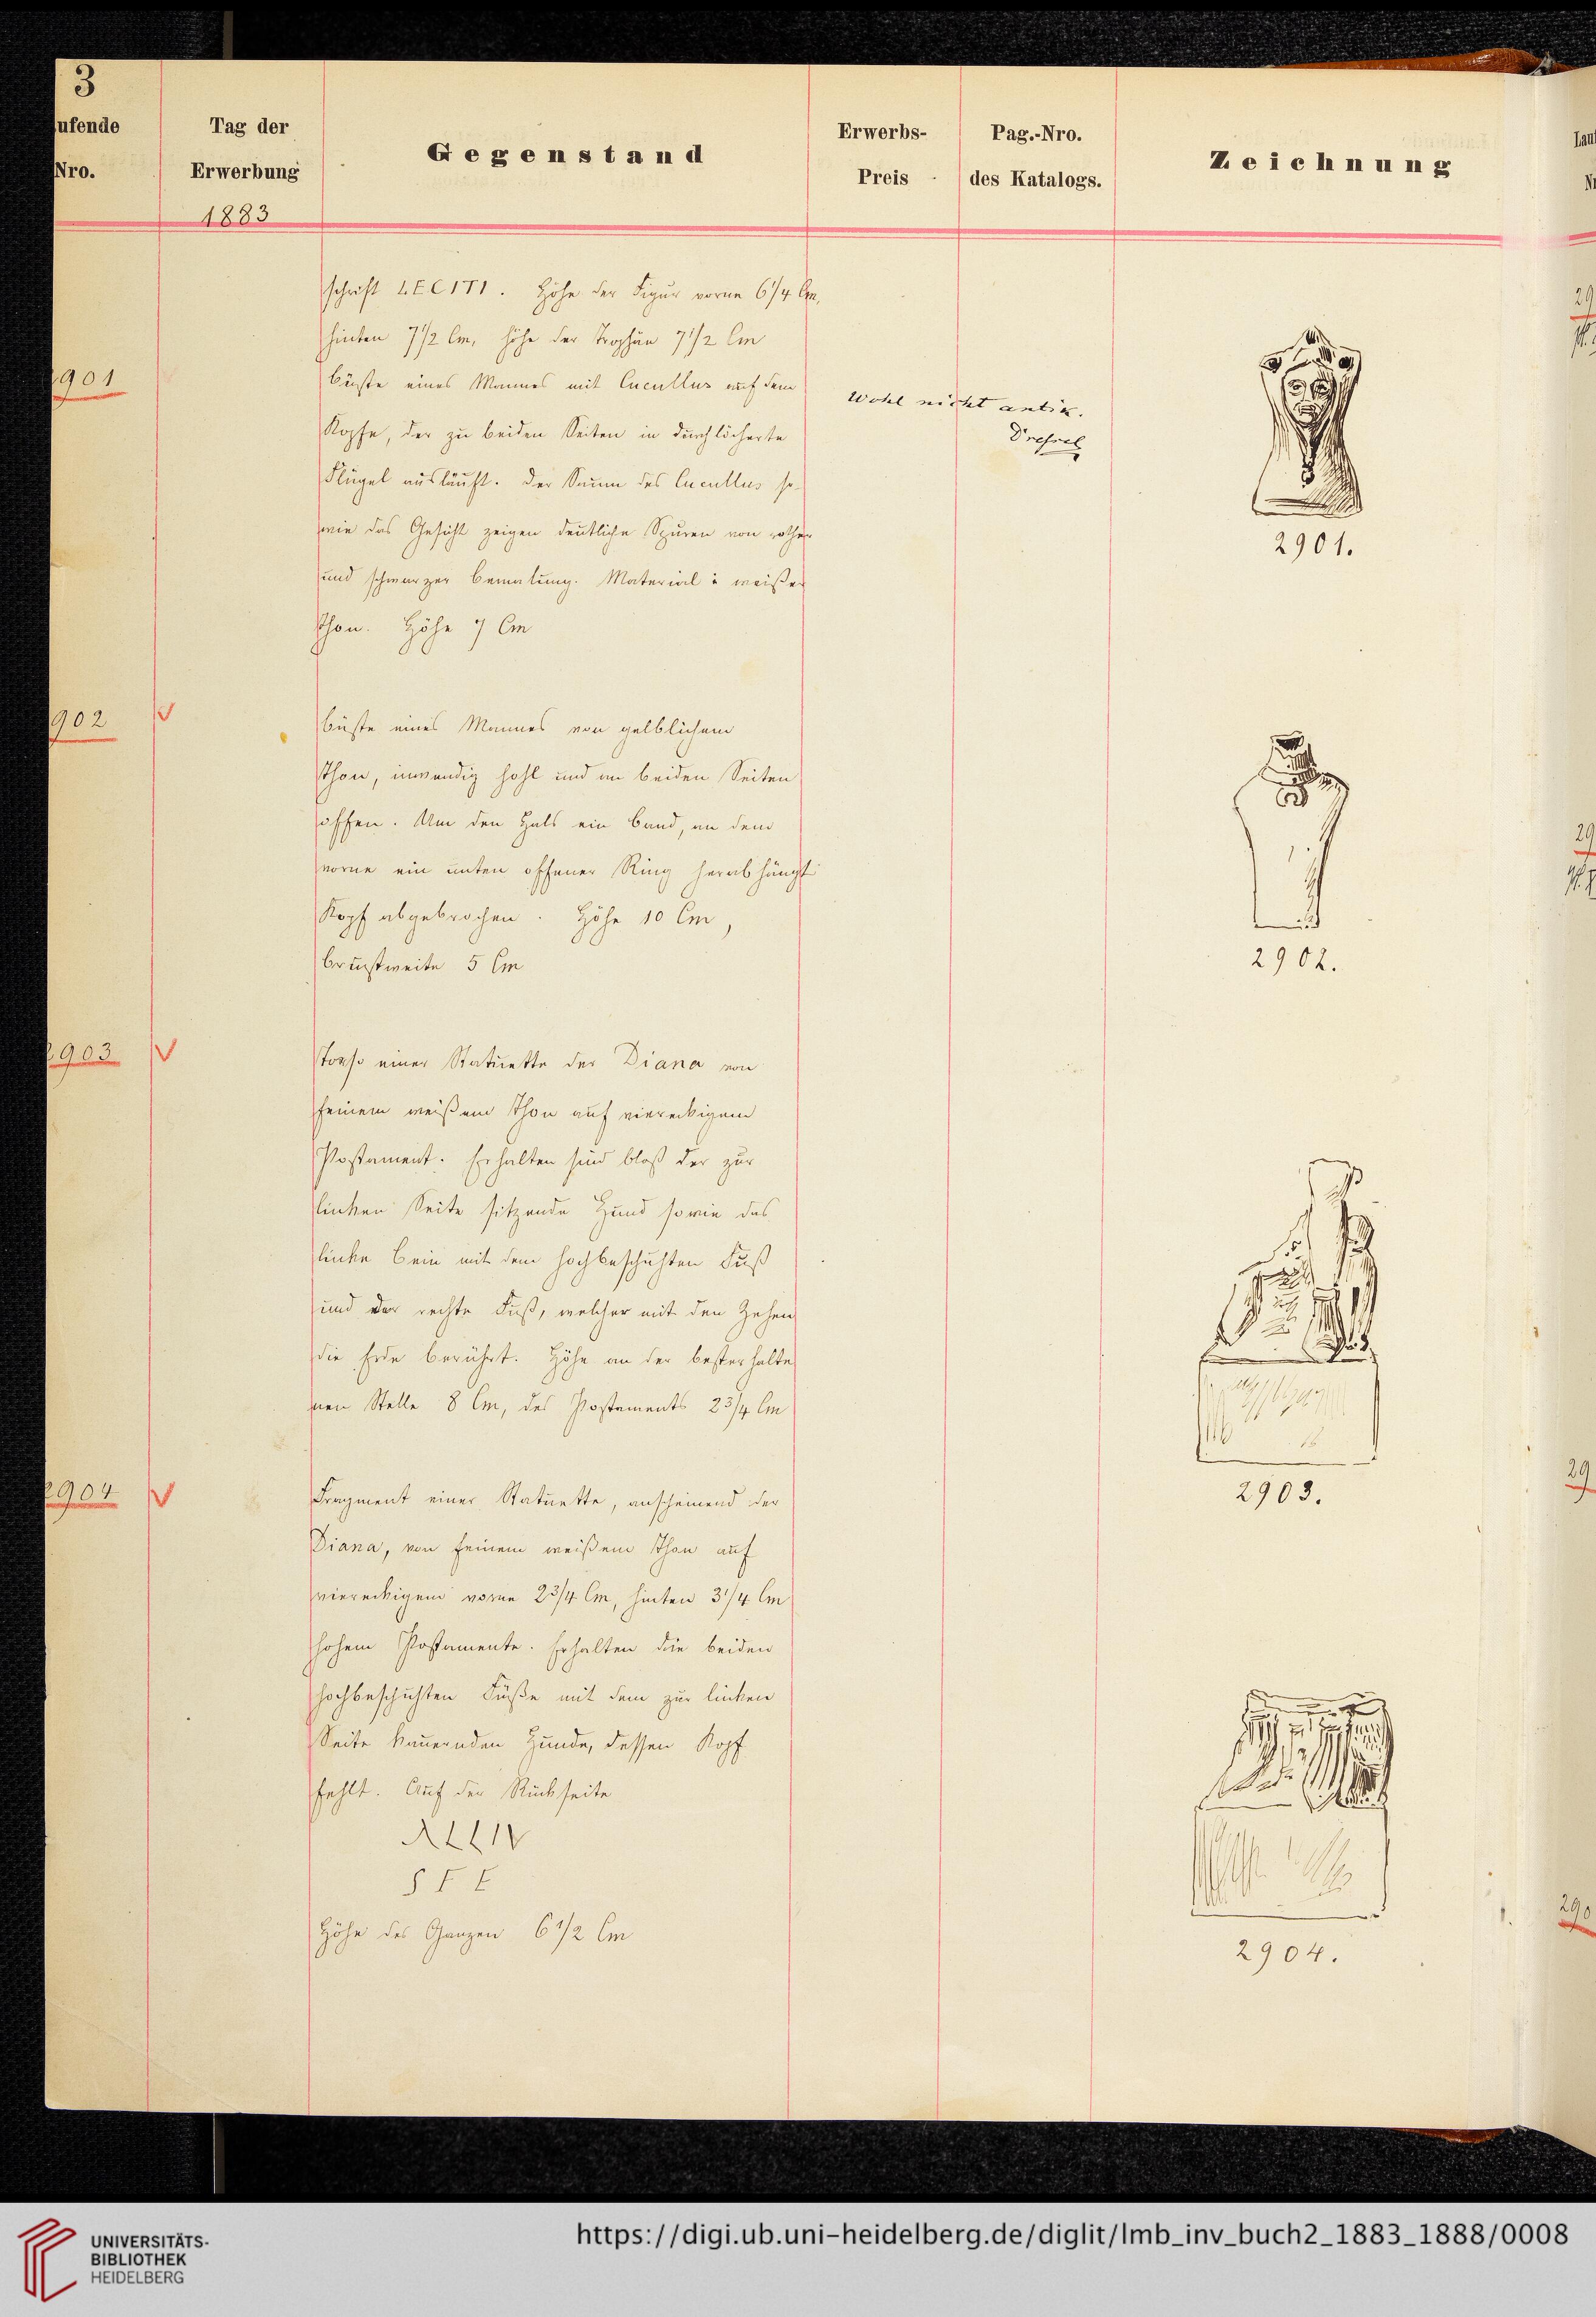 3
ufende
Nro.
Tag der
Erwerbung
1883
Gegenstand
Erwerbs-
Preis
Pag.-Nro.
des Katalogs.
Zeichnung
schrift LECITI. Höhe der Figur vorne 6 1/4 Cm,
hinten 7 1/2 Cm, Höhe der Trophäe 7 1/2 Cm
901
Büste eines Mannes mit Cucullus auf dem
Kopfe, der zu beiden Seiten in durchlöcherte
Flügel ausläuft. Der Saum des Cucullus so-
wie das Gesicht zeigen deutliche Spuren von rother
und schwarzer Bemalung. Material: weißer
Thon. Höhe 7 Cm
Wohl nicht antik.
Dressel
2901.
902
Büste eines Mannes von gelblichem
Thon, inwendig hohl und an beiden Seiten
offen. Um den Hals ein Band, an dem
vorne ein unten offener Ring herabhängt
Kopf abgebrochen. Höhe 10 Cm,
Brustweite 5 Cm
2902.
2903
Torso einer Statuette der Diana von
feinem weißem Thon auf viereckigem
Postament. Erhalten sind bloß der zur
linken Seite sitzende Hund sowie das
linke Bein mit dem hochbeschuhten Fuß
und der rechte Fuß, welcher mit den Zehen
die Erde berührt. Höhe an der besterhalte
nen Stelle 8 Cm, des Postaments 2 3/4 Cm
2903.
2904
Fragment einer Statuette, anscheinend der
Diana, von feinem weißem Thon auf
viereckigem vorne 2 3/4 Cm, hinten 3 1/4 Cm
hohem Postamente. Erhalten die beiden
hochbeschuhten Füße mit dem zur linken
Seite kauernden Hunde, dessen Kopf
fehlt. Auf der Rückseite
ALLIV
S F E
Höhe des Ganzen 6 1/2 Cm
2904.
Lau
29
29
29
290
UNIVERSITÄTS-
BIBLIOTHEK
HEIDELBERG
https://digi.ub.uni-heidelberg.de/diglit/lmb_inv_buch2_1883_1888/0008